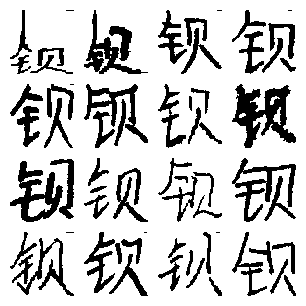 钡钡钡钡
钡钡钡钡
钡钡钡钡
钡钡钡钡